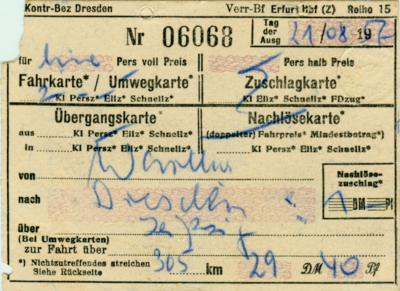 Kontr-Bez Dresden Verr-Bf Erfurt Hbf (Z) Reihe 15
Nr 06068 Tag der Ausg 21/08 19
für Pers voll Preis Pers halb Preis
Fahrkarte* / Umwegkarte* Zuschlagkarte*
2 Kl Persz* Eilz* Schnellz* Kl Eilz* Schnellz* FDzug*)
Übergangskarte* Nachlösekarte*
aus Kl Persz* Eilz* Schnellz* (doppelter) Fahrpreis* Mindestbetrag*)
in Kl Persz* Eilz* Schnellz* Kl Persz* Eilz* Schnellz*
von
Nachlöse-zuschlag*
nach Dresden
1 DM Pf
über Leipzig
(Bei Umwegkarten)
zur Fahrt über
*) Nichtzutreffendes streichen 305 km 29 DM 40 Pf
Siehe Rückseite